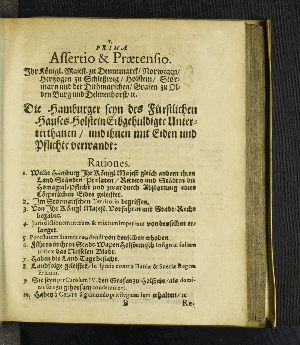 PRIMA
Assertio & Prætensio.
Ihr Königl. Majest. zu Dennemarck / Norwegen /
Hertzogen zu Schleßwig / Holstein / Stor-
marn und der Dithmarschen / Grafen zu Ol-
den Burg und Delmenhorst / ꝛc.
Die Hamburger seyn des Fürstlichen
Hauses Holstein Erbgehuldigte Unter-
terthanen / und ihnen mit Eiden und
Pflichte verwandt:
Rationes.
1. Weile Hamburg Ihr Königl Majest gleich andern ihren
Land-Ständen Prelaten / Rittern und Städten die
Homagial-Pflicht und zwar durch Abstattung eines
Cörperlichen Eides geleistet.
2. Im Stormarischen Territorio begriffen.
3. Von Ihr Königl Majest. Vorfahren mit Stadt-Recht
begabet.
4. Jurisdictionem meram & mixtum imperium von denselben er-
langet.
5. Potestatem Statuta von denselben erhalten.
6. Führen in ihren Stadt-Wapen Holsteinisch Insigne
das Nesselen Bladt.
7. Haben die Land-Tage besucht.
8. Landfolge geleistet / In specie contra Regem
Ericum.
9. Sie seyn per Carolum IV. den Grafen zu Holstein / als domi-
zu gehorsam condemniret.
10. Haben à Cæsare Sigismundo privilegium erhalten / in
B Re-